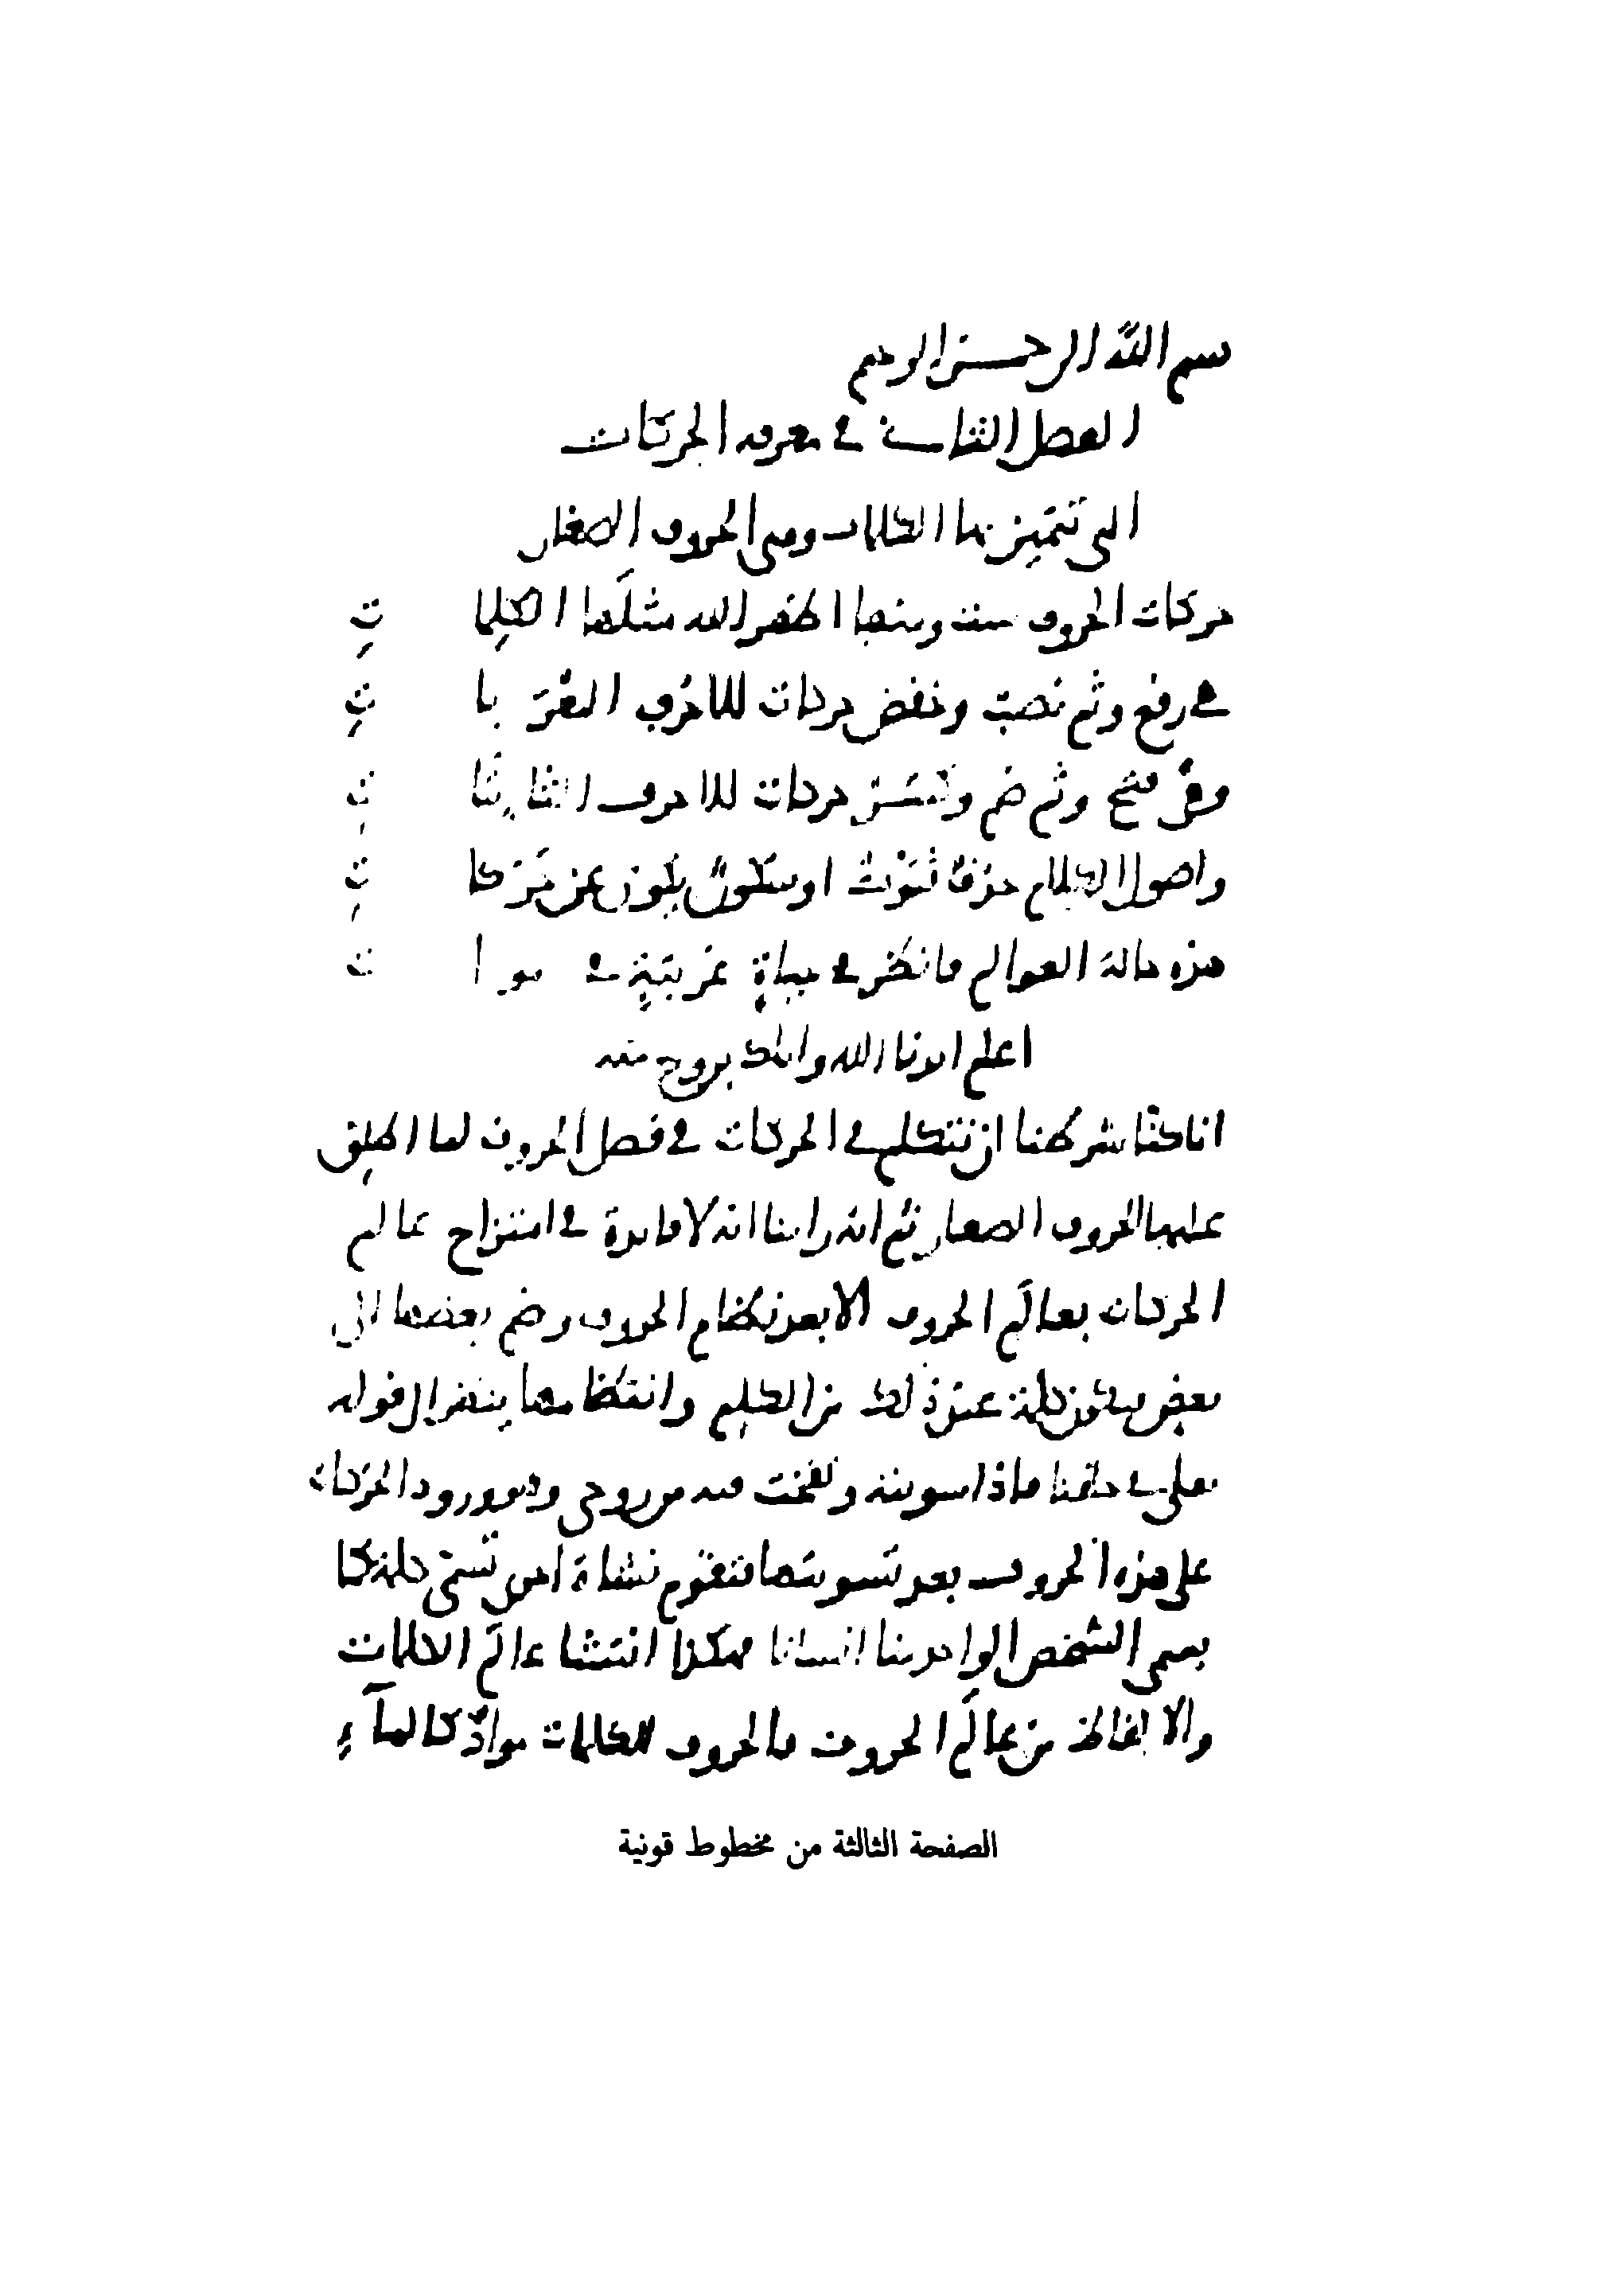 بسم الله الرحمن الرحيم
الفصل الثاني في معرفة الحركات
التي تتميز بها الكلمات وهي الحروف الصغار
حركات الحروف ست ومنها اظهر الله مثلها الكلما تِ
هي رفع وثم نصب وخفض حركات للاحرف المعر با تِ
وهي فتح وثم ضم وكسر حركات للاحرف الثابتا تِ
واصول الكلام حذف ثموت او سكون يكون عن حركا تِ
هذه حالة العوالم فانظر في حياة غريبة في موا ت
اعلم ايدنا الله واياك بروح منه
انا كنا شرطنا ان نتكلم في الحركات في فصل الحروف لما اطلق
عليها الحروف الصغار ثم انه راينا انه لا فايدة في امتزاج عالم
الحركات بعالم الحروف الا بعد نظام الحروف وضم بعضها الى
بعض فتكون كلمة عند ذلك من الكلم وانتظامها ينظر الى قوله
تعلى في خلقنا فاذا سويته ونفخت فيه من روحي وهو ورود الحركات
على هذه الحروف بعد تسويتها فتقوم نشاة اخرى تسمى كلمة كما
يسمى الشخص الواحد منا انسانا فهكذا انتشا عالم الكلمات
والالفاظ من عالم الحروف فالحروف للكلمات مواد كالماء
الصفحة الثالثة من مخطوط قونية